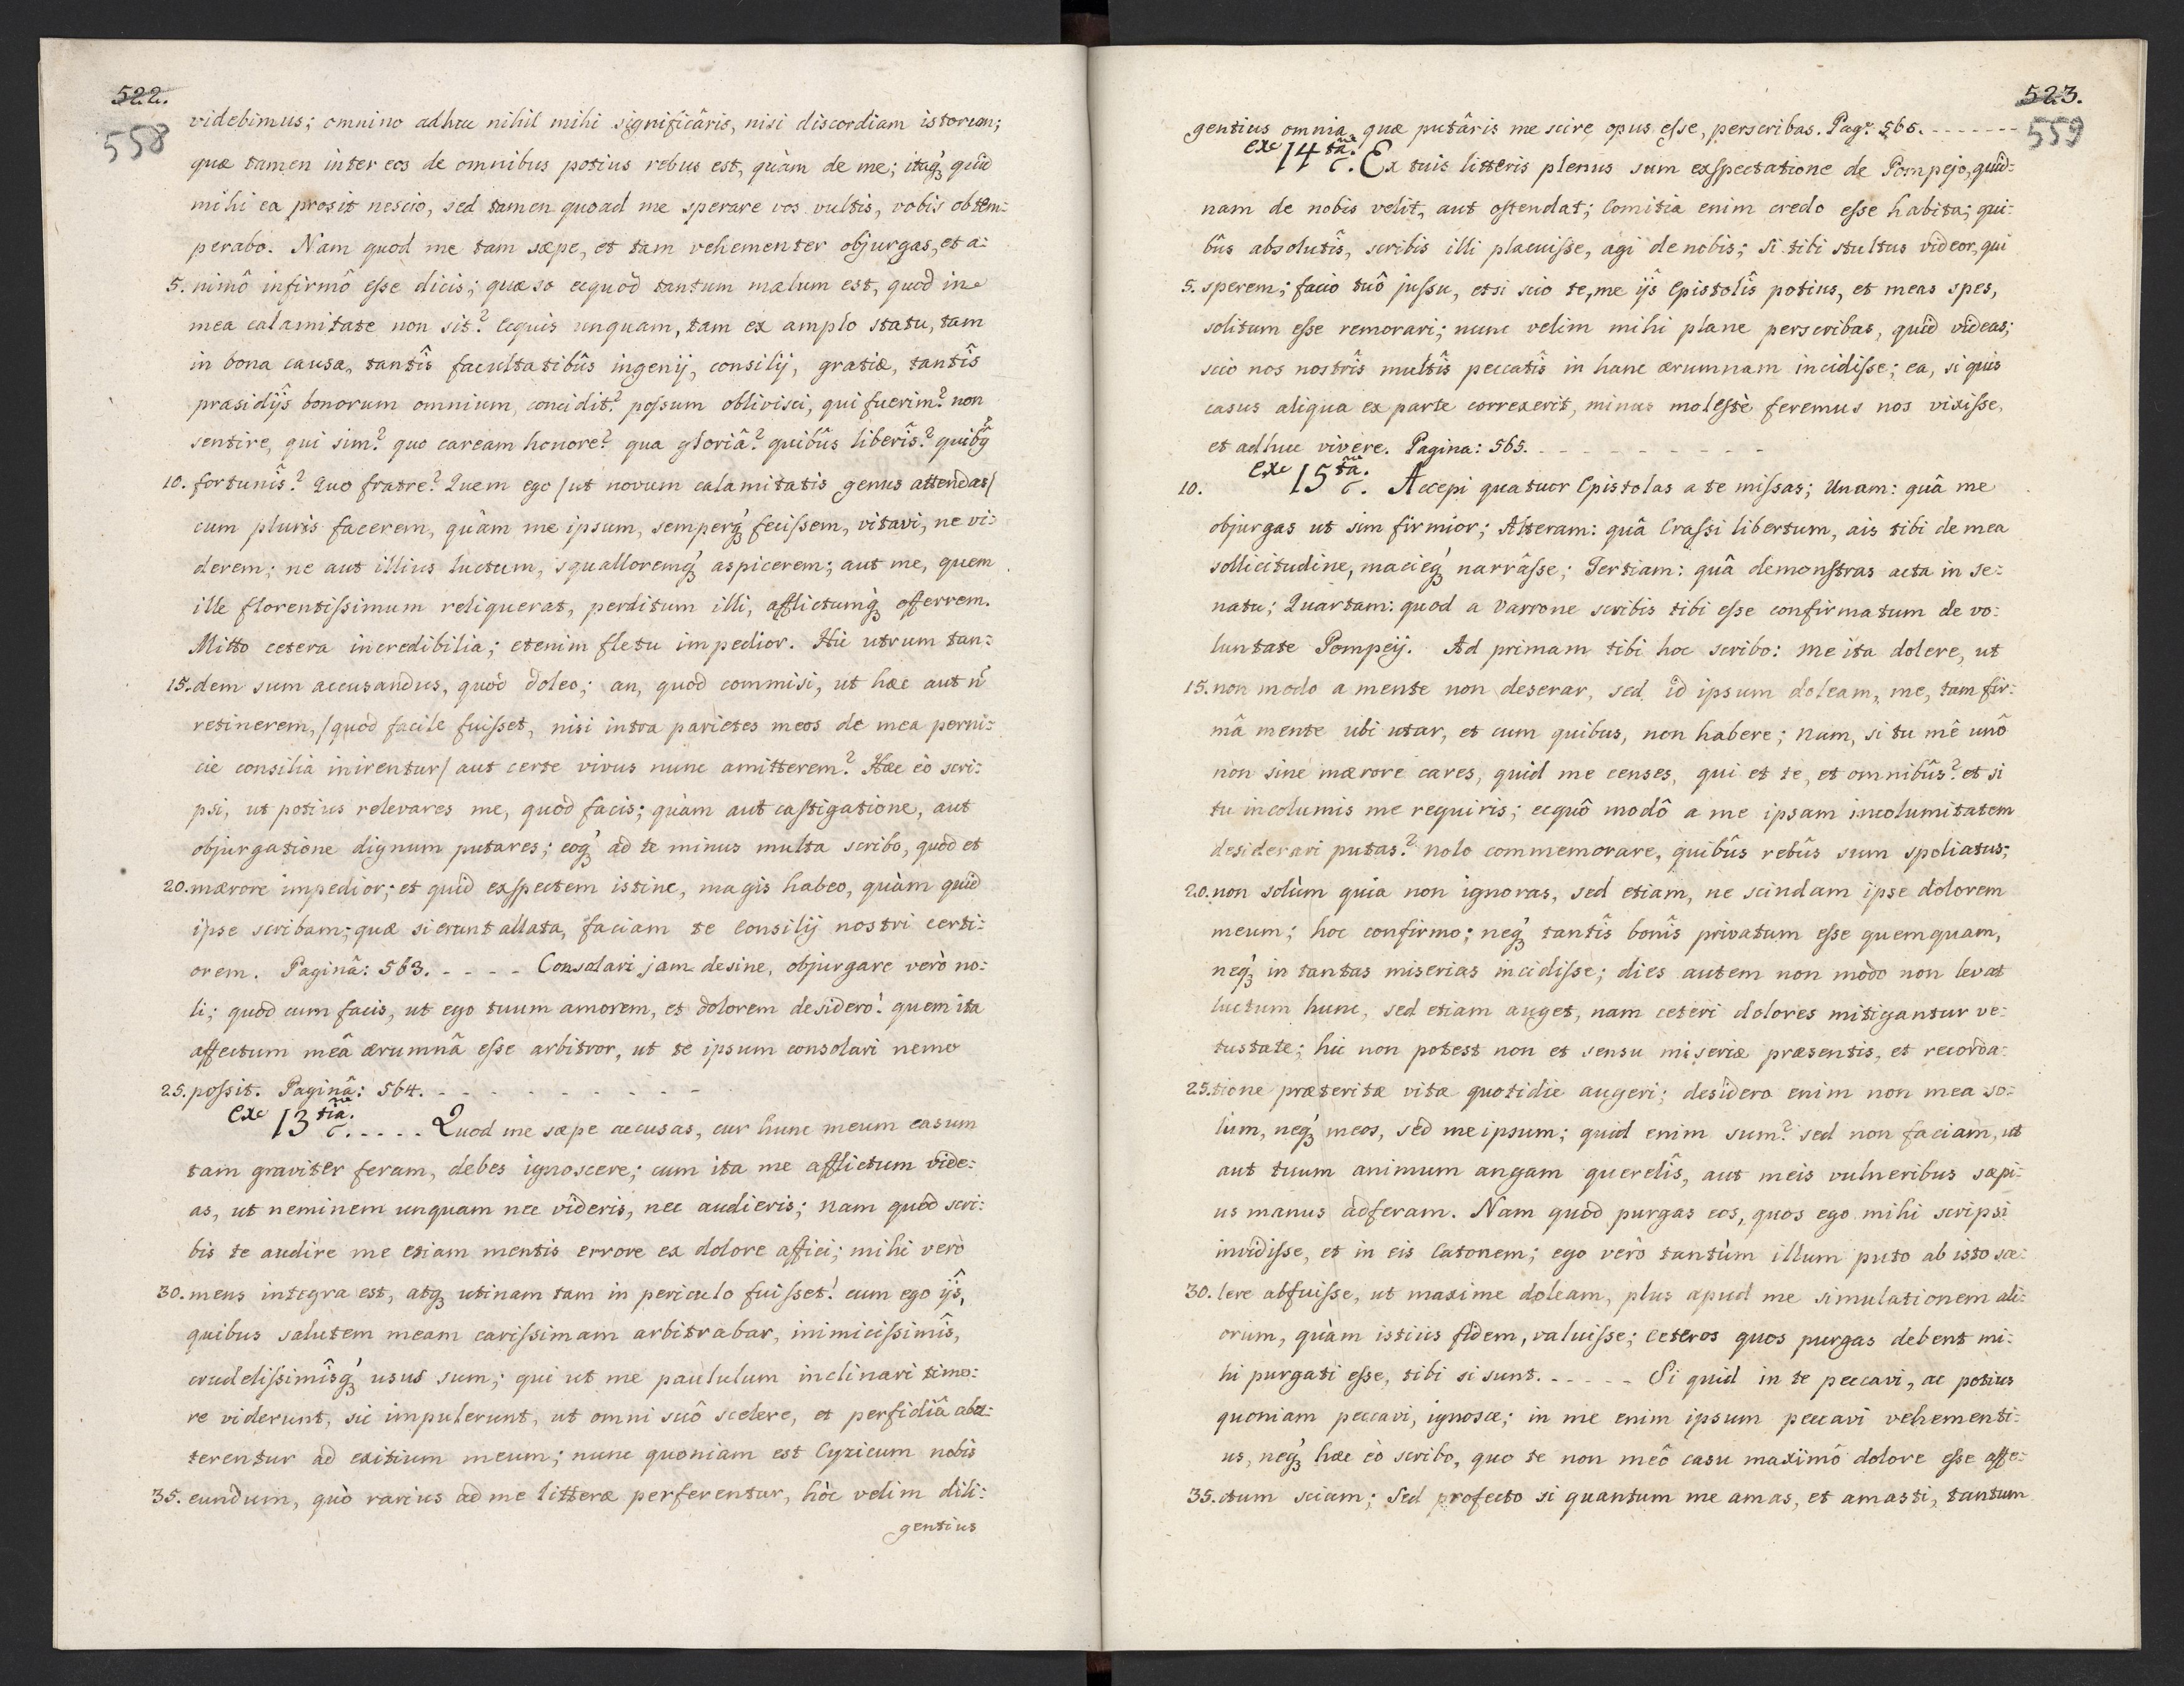 522.
558
videbimus; omnino adhuc nihil mihi significâris, nisi discordiam istorum;
quæ tamen inter eos de omnibus potius rebus est, quàm de me; itaq́ꝫ quid
mihi ea prosit nescio, sed tamen quoad me sperare vos vultis, vobis obtem:
perabo. Nam quod me tam sæpe, et tam vehementer objurgas, et a:
5. nimô infirmô eſse dicis; quæso ecquod tantum malum est, quod in
mea calamitate non sit? Ecquis unquam, tam ex amplo statu, tam
in bona causa, tantîs facultatibûs ingenij, consilij, gratiæ, tantîs
præsidijs bonorum omnium, concidit? poſsum oblivisci, qui fuerim? non
sentire, qui sim? quo caream honore? qua gloriâ? quibûs liberîs? quibꝰ
10. fortunîs? Quo fratre? Quem ego /ut novum calamitatis genus attendas/
cum pluris facerem, quàm me ipsum, semperq́ꝫ feciſsem, vitavi, ne vi:
derem; ne aut illius luctum, squalloremq́ꝫ aspicerem; aut me, quem
ille florentiſsimum reliquerat, perditum illi, afflictumq́ꝫ offerrem.
Mitto cetera incredibilia; etenim fletu impedior. Hic utrum tan:
15. dem sum accusandus, quòd doleo; an, quod commisi, ut hæc aut n̄
retinerem, /quod facile fuiſset, nisi intra parietes meos de mea perni:
cie consilia inirentur/ aut certe vivus nunc amitterem? Hæc eò scri:
psi, ut potius relevares me, quod facis; quàm aut castigatione, aut
objurgatione dignum putares; eoq́ꝫ ad te minus multa scribo, quòd et
20. mærore impedior; et quid exspectem istinc, magis habeo, quàm quid
ipse scribam; quæ si erunt allata, faciam te Consilij nostri certi:
orem. Paginâ: 563. - - - - Consolari jam desine, objurgare verò no:
li; quod cum facis, ut ego tuum amorem, et dolorem desidero! quem ita
affectum meâ ærumnâ eſse arbitror, ut te ipsum consolari nemo
25. poſsit. Paginâ: 564. - - - - - - - - -
Exc 13 tiâ. - - - - Quod me sæpe accusas, cur hunc meum casum
tam graviter feram, debes ignoscere; cum ita me afflictum vide:
as, ut neminem unquam nec videris, nec audieris; nam quod scri:
bis te audire me etiam mentis errore ex dolore affici; mihi verò
30. mens integra est, atqꝫ utinam tam in periculo fuiſset! cum ego ijs,
quibus salutem meam cariſsimam arbitrabar, inimiciſsimîs,
crudeliſsimîsq́ꝫ usus sum; qui ut me paululum inclinari timo:
re viderunt, sic impulerunt, ut omni suô scelere, et perfidiâ abu:
terentur ad exitium meum; nunc quoniam est Cyzicum nobis
35. eundum, quò rarius ad me litteræ perferentur, hòc velim dili:
gentius
523.
559
gentius omnia, quæ putâris me scire opus eſse, perscribas. Pag: 565. - - - - - - -
Exc 14 tâ. Ex tuis litteris plenus sum exspectatione de Pompejo, quid:
nam de nobis velit, aut ostendat; Comitia enim credo eſse habita; qui:
bûs absolutîs, scribis illi placuiſse, agi de nobis; si tibi stultus videor, qui
5. sperem; facio tuô juſsu, etsi scio te, me ijs Epistolîs potius, et meas spes,
solitum eſse remorari; nunc velim mihi plane perscribas, quid videas;
scio nos nostrîs multîs peccatîs in hanc ærumnam incidiſse; ea, si quis
casus aliqua ex parte correxerit, minus molestè feremus nos vixiſse,
et adhuc vivere. Pagina: 565. - - - - - - - - -
10. Exc 15 tâ. Accepi quatuor Epistolas a te miſsas; Unam: quâ me
objurgas ut sim firmior; Alteram: quâ Craſsi libertum, ais tibi de mea
sollicitudine, macieq́ꝫ narrâſse; Tertiam: quâ demonstras acta in se:
natu; Quartam: quod a Varrone scribis tibi eſse confirmatum de vo:
luntate Pompeij. Ad primam tibi hoc scribo: me ita dolere, ut
15. non modo a mente non deserar, sed id ipsum doleam, me, tam fir:
mâ mente ubi utar, et cum quibus, non habere; Nam, si tu mê unô
non sine mærore cares, quid me censes, qui et te, et omnibûs? et si
tu incolumis me requiris; ecquô modô a me ipsam incolumitatem
desiderari putas? nolo commemorare, quibûs rebûs sum spoliatus;
20. non solùm quia non ignoras, sed etiam, ne scindam ipse dolorem
meum; hoc confirmo; neq́ꝫ tantîs bonîs privatum eſse quemquam,
neq́ꝫ in tantas miserias incidiſse; dies autem non modo non levat
luctum hunc, sed etiam auget, nam ceteri dolores mitigantur ve:
tustate; hic non potest non et sensu miseriæ præsentis, et recorda:
25. tione præteritæ vitæ quotidie augeri; desidero enim non mea so:
lum, neq́ꝫ meos, sed me ipsum; quid enim sum? sed non faciam, ut
aut tuum animum angam querelîs, aut meis vulneribus sæpi:
us manus adferam. Nam quod purgas eos, quos ego mihi scripsi
invidiſse, et in eis Catonem; ego verò tantùm illum puto ab isto sce:
30. lere abfuiſse, ut maxime doleam, plus apud me simulationem ali:
orum, quàm istius fidem, valuiſse; Ceteros quos purgas debent mi:
hi purgati eſse, tibi si sunt. - - - - - Si quid in te peccavi, ac potius
quoniam peccavi, ignosce; in me enim ipsum peccavi vehementi:
us, neq́ꝫ hæc eò scribo, quo te non meô casu maximô dolore eſse affe:
35. ctum sciam; Sed profecto si quantum me amas, et amasti, tantum